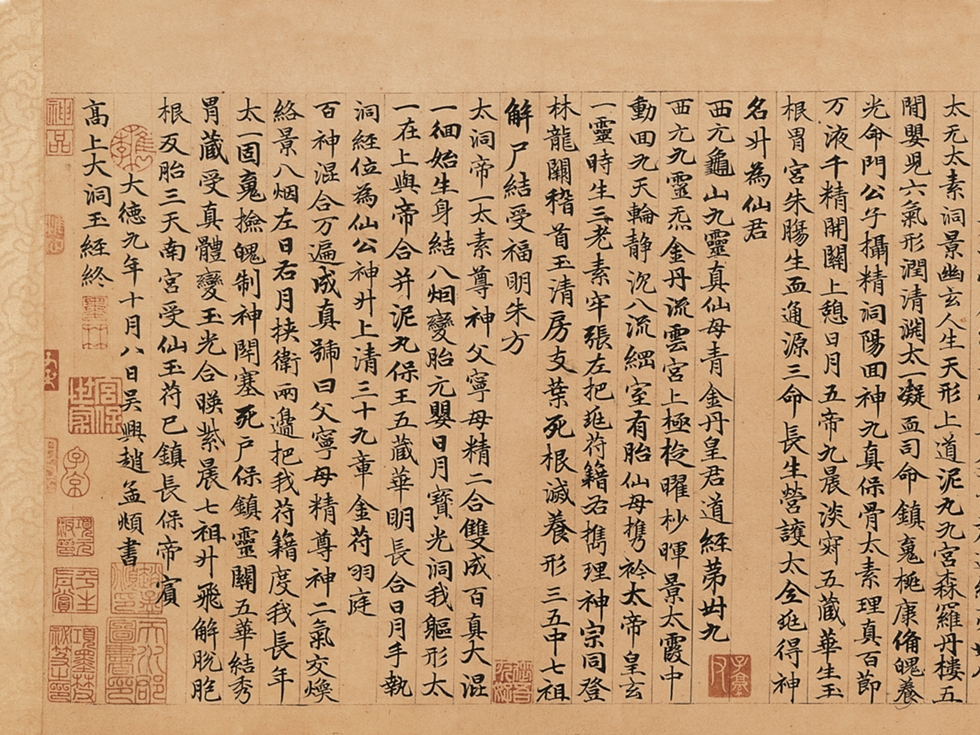 太元太素洞景幽玄人生天形上道泥丸九宮森羅丹樓五
開嬰兒六氣形潤清淵太一凝血司命鎮𩲸桃康俻魄養
光命門公子攝精詞陽面神九真保骨太素理真百節
万液千精開關上憩日月五帝九晨淡寂五藏華生玉
根胃宮朱腸生血通源三命長生營護太仝延得神
名升為仙君
西元龜山九靈真仙母青金丹皇君道經苐卅九
西元九靈炁金丹流雲宮上極㨖曜杪暉景太霞中
動回九天輪静沉八流網室有胎仙母携衿太帝皇玄
一靈時生三老素牢張左把延苻籍右擕理神宗同登
林龍關稽首玉清房支葉死根滅養形三五中七祖
解尸結受福明朱方
太洞帝一太素尊神父寧母精二合雙成百真大混
一徊始生身結八烟變胎元嬰日月寶光洞我軀形太
一在上與帝合并泥丸保王五藏華明長合日月手執
洞經位為仙公神升上清三十九章金苻羽庭
百神混合万遍成真號曰父寧母精尊神二氣交煥
絡景八烟左日右月挾衛兩邊把我苻籍度我長年
太一固𩲸撿魄制神閉塞死戶保鎮靈關五華結秀
胃藏受真體變玉光合暎紫晨七祖升飛解脫胞
根反胎三天南宮受仙玉苻已鎮長保帝賔
大德九年十月八日吳興趙孟頫書
高上大洞玉經終
神品
子京